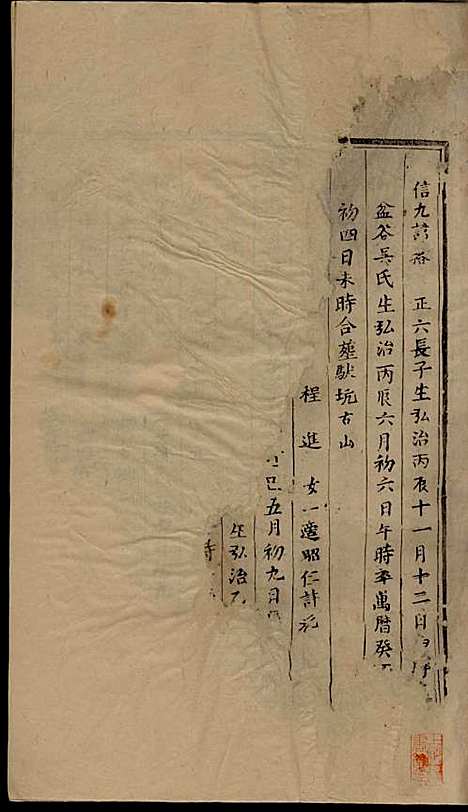 信九諱 正六長子生弘治丙辰十一月十二日
盆谷吳氏生弘治丙辰六月初六日午時卒萬曆癸
初四日未時合葬 坑古山
程進 女一適昭仁許
巳五月初九日
生弘治
時